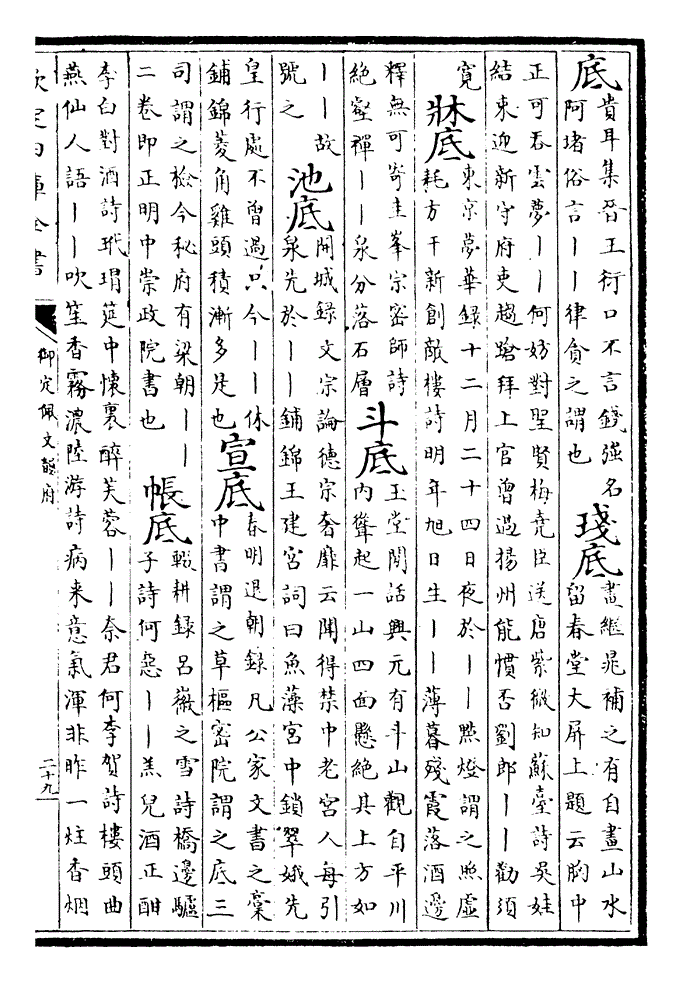 底
貴耳集晉王衍口不言錢強名
阿堵俗言——律貪之謂也
琖底
畫繼晁補之有自畫山水
留春堂大屏上題云胸中
正可吞雲夢——何妨對聖賢梅堯臣送唐紫微知蘇臺詩吳娃
結束迎新守府吏趨蹌拜上官曾過揚州能慣否劉郎——勸須
寛
牀底
東京夢華錄十二月二十四日夜於——照燈謂之照虛
耗方干新創敵樓詩明年旭日生——薄暮殘霞落酒邊
釋無可寄圭峯宗密師詩
絶壑禪——泉分落石層
斗底
玉堂閒話興元有斗山觀自平川
内聳起一山四面懸絶其上方如
——故
號之
池底
開城録文宗論德宗奢靡云聞得禁中老宮人每引
泉先於——鋪錦王建宮詞曰魚藻宮中鎖翠娥先
皇行處不曾過只今——休
鋪錦菱角雞頭積漸多是也
宣底
春明退朝録凡公家文書之稾
中書謂之草樞密院謂之底三
司謂之檢今秘府有梁朝——
二卷即正明中崇政院書也
帳底
輟耕録吕徽之雪詩橋邊驢
子詩何惡——羔兒酒正酣
李白對酒詩玳瑁筵中懷裏醉芙蓉——奈君何李賀詩樓頭曲
燕仙人語——吹笙香霧濃陸游詩病来意氣渾非昨一炷香烟
欽定四庫全書
御定佩文韻府
二十九